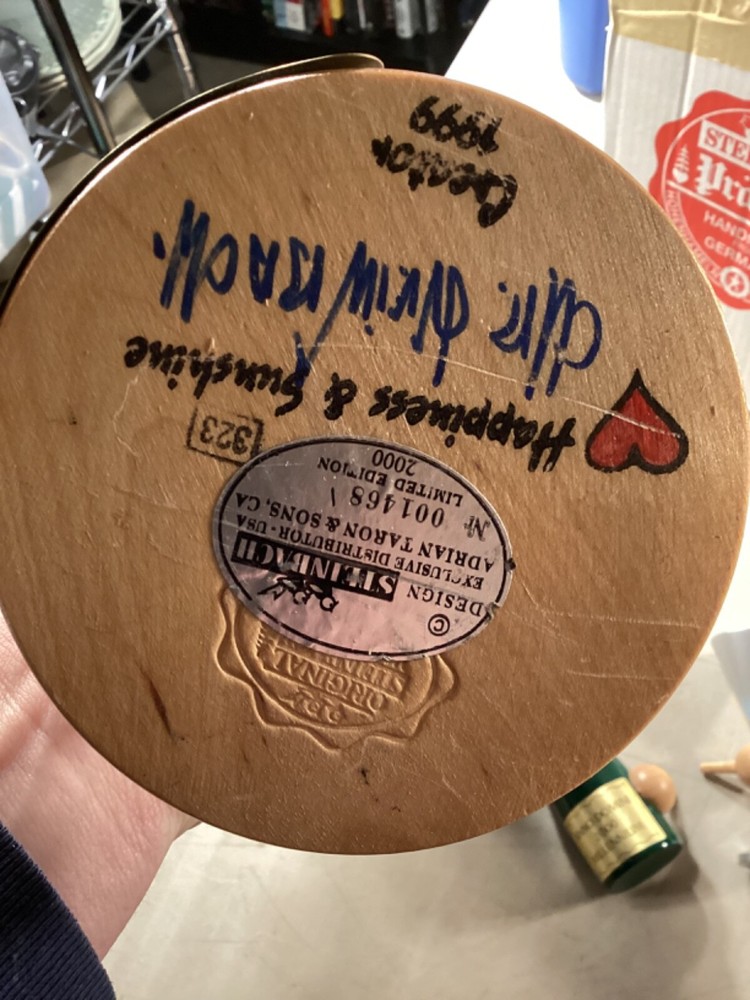 ORIGINAL
© DESIGN STEINBACH
EXCLUSIVE DISTRIBUTOR - USA
ADRIAN TARON & SONS, CA
№ 001468 \
LIMITED EDITION
2000
323
Happiness & Sunshine
Creator
1999
STE
Pri
HAND
GERMA